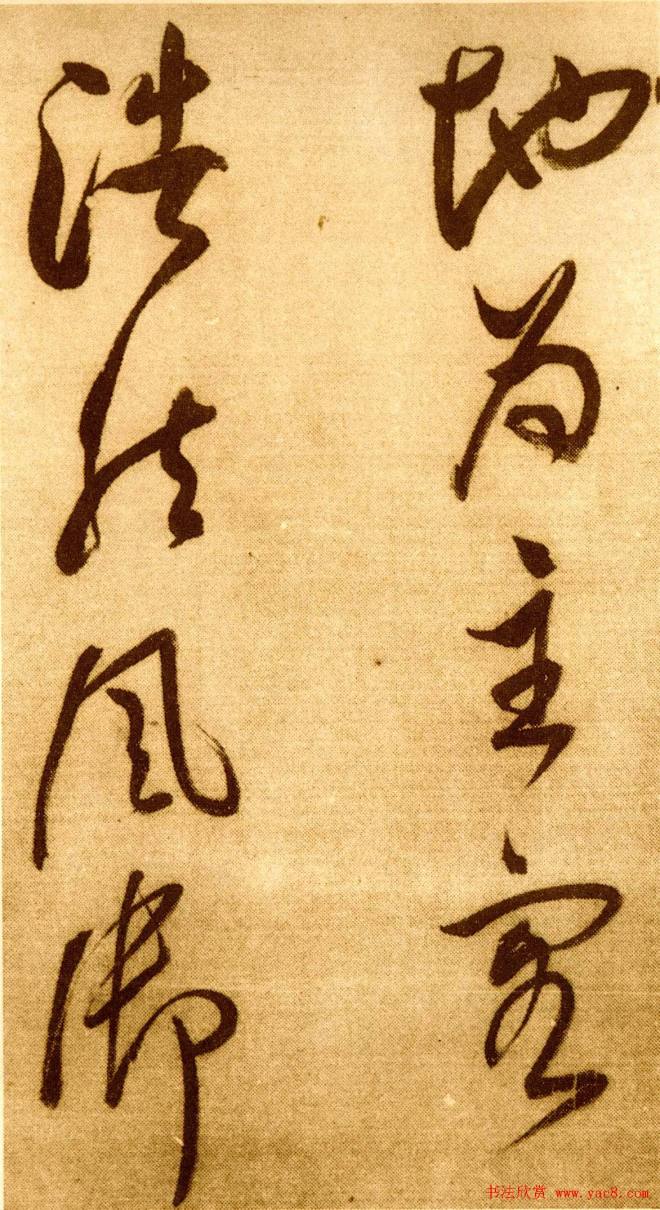 地为主客
浩然风御
书法欣赏 www.yac8.com